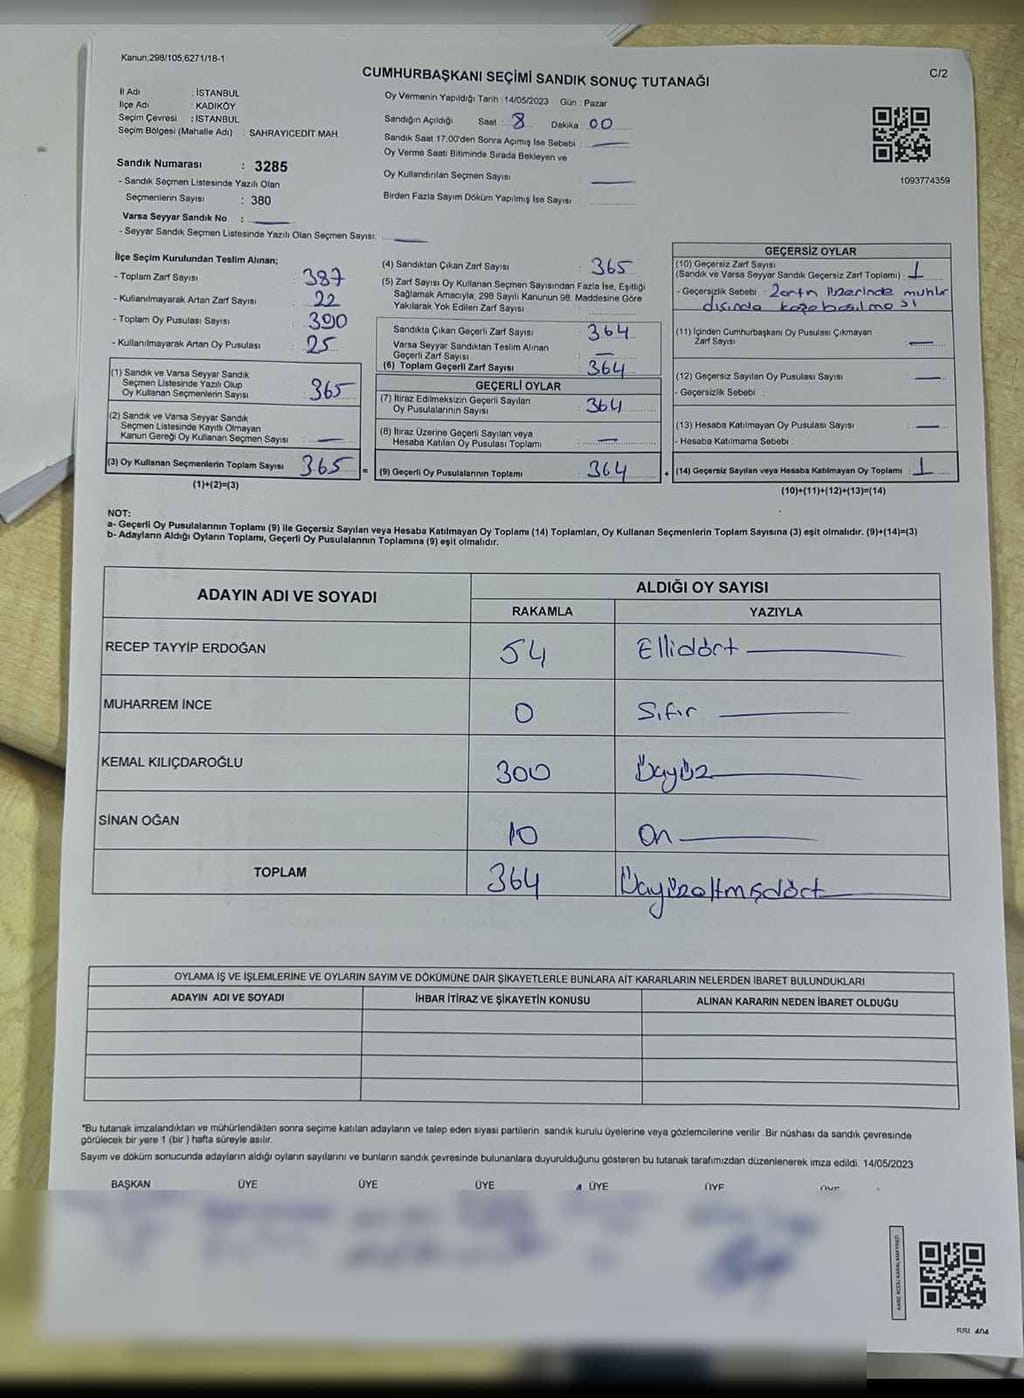 Kanun,298/105,6271/18-1
CUMHURBAŞKANI SEÇİMİ SANDIK SONUÇ TUTANAĞI
C/2
İl Adı : İSTANBUL
İlçe Adı : KADIKÖY
Seçim Çevresi : İSTANBUL
Seçim Bölgesi (Mahalle Adı) : SAHRAYICEDİT MAH
Sandık Numarası : 3285
- Sandık Seçmen Listesinde Yazılı Olan
Seçmenlerin Sayısı : 380
Varsa Seyyar Sandık No :
- Seyyar Sandık Seçmen Listesinde Yazılı Olan Seçmen Sayısı:
Oy Vermenin Yapıldığı Tarih : 14/05/2023 Gün : Pazar
Sandığın Açıldığı Saat : 8 Dakika : 00
Sandık Saat 17.00'den Sonra Açımış İse Sebebi :
Oy Verme Saati Bitiminde Sırada Bekleyen ve
Oy Kullandırılan Seçmen Sayısı
Birden Fazla Sayım Döküm Yapılmış İse Sayısı
1093774359
İlçe Seçim Kurulundan Teslim Alınan;
- Toplam Zarf Sayısı : 387
- Kullanılmayarak Artan Zarf Sayısı : 22
- Toplam Oy Pusulası Sayısı : 390
- Kullanılmayarak Artan Oy Pusulası : 25
(1) Sandık ve Varsa Seyyar Sandık
Seçmen Listesinde Yazılı Olup
Oy Kullanan Seçmenlerin Sayısı : 365
(2) Sandık ve Varsa Seyyar Sandık
Seçmen Listesinde Kayıtlı Olmayan
Kanun Gereği Oy Kullanan Seçmen Sayısı :
(3) Oy Kullanan Seçmenlerin Toplam Sayısı : 365 =
(1)+(2)=(3)
(4) Sandıktan Çıkan Zarf Sayısı : 365
(5) Zarf Sayısı Oy Kullanan Seçmen Sayısından Fazla İse, Eşitliği
Sağlamak Amacıyla; 298 Sayılı Kanunun 98. Maddesine Göre
Yakılarak Yok Edilen Zarf Sayısı :
Sandıkta Çıkan Geçerli Zarf Sayısı : 364
Varsa Seyyar Sandıktan Teslim Alınan
Geçerli Zarf Sayısı :
(6) Toplam Geçerli Zarf Sayısı : 364
GEÇERLİ OYLAR
(7) İtiraz Edilmeksizin Geçerli Sayılan
Oy Pusulalarının Sayısı : 364
(8) İtiraz Üzerine Geçerli Sayılan veya
Hesaba Katılan Oy Pusulası Toplamı :
(9) Geçerli Oy Pusulalarının Toplamı : 364 +
GEÇERSİZ OYLAR
(10) Geçersiz Zarf Sayısı
(Sandık ve Varsa Seyyar Sandık Geçersiz Zarf Toplamı) : 1
- Geçersizlik Sebebi : Zarfın üzerinde mühür
dışında kaşe basılması
(11) İçinden Cumhurbaşkanı Oy Pusulası Çıkmayan
Zarf Sayısı :
(12) Geçersiz Sayılan Oy Pusulası Sayısı :
- Geçersizlik Sebebi :
(13) Hesaba Katılmayan Oy Pusulası Sayısı :
- Hesaba Katılmama Sebebi :
(14) Geçersiz Sayılan veya Hesaba Katılmayan Oy Toplamı : 1
(10)+(11)+(12)+(13)=(14)
NOT:
a- Geçerli Oy Pusulalarının Toplamı (9) ile Geçersiz Sayılan veya Hesaba Katılmayan Oy Toplamı (14) Toplamları, Oy Kullanan Seçmenlerin Toplam Sayısına (3) eşit olmalıdır. (9)+(14)=(3)
b- Adayların Aldığı Oyların Toplamı, Geçerli Oy Pusulalarının Toplamına (9) eşit olmalıdır.
ADAYIN ADI VE SOYADI
ALDIĞI OY SAYISI
RAKAMLA YAZIYLA
RECEP TAYYİP ERDOĞAN 54 Ellidört
MUHARREM İNCE 0 Sıfır
KEMAL KILIÇDAROĞLU 300 Üçyüz
SİNAN OĞAN 10 On
TOPLAM 364 Üçyüzaltmışdört
OYLAMA İŞ VE İŞLEMLERİNE VE OYLARIN SAYIM VE DÖKÜMÜNE DAİR ŞİKAYETLERLE BUNLARA AİT KARARLARIN NELERDEN İBARET BULUNDUKLARI
ADAYIN ADI VE SOYADI İHBAR İTİRAZ VE ŞİKAYETİN KONUSU ALINAN KARARIN NEDEN İBARET OLDUĞU
*Bu tutanak imzalandıktan ve mühürlendikten sonra seçime katılan adayların ve talep eden siyasi partilerin sandık kurulu üyelerine veya gözlemcilerine verilir .Bir nüshası da sandık çevresinde
görülecek bir yere 1 (bir ) hafta süreyle asılır.
Sayım ve döküm sonucunda adayların aldığı oyların sayılarını ve bunların sandık çevresinde bulunanlara duyurulduğunu gösteren bu tutanak tarafımızdan düzenlenerek imza edildi. 14/05/2023
BAŞKAN ÜYE ÜYE ÜYE ÜYE ÜYE ÜYE